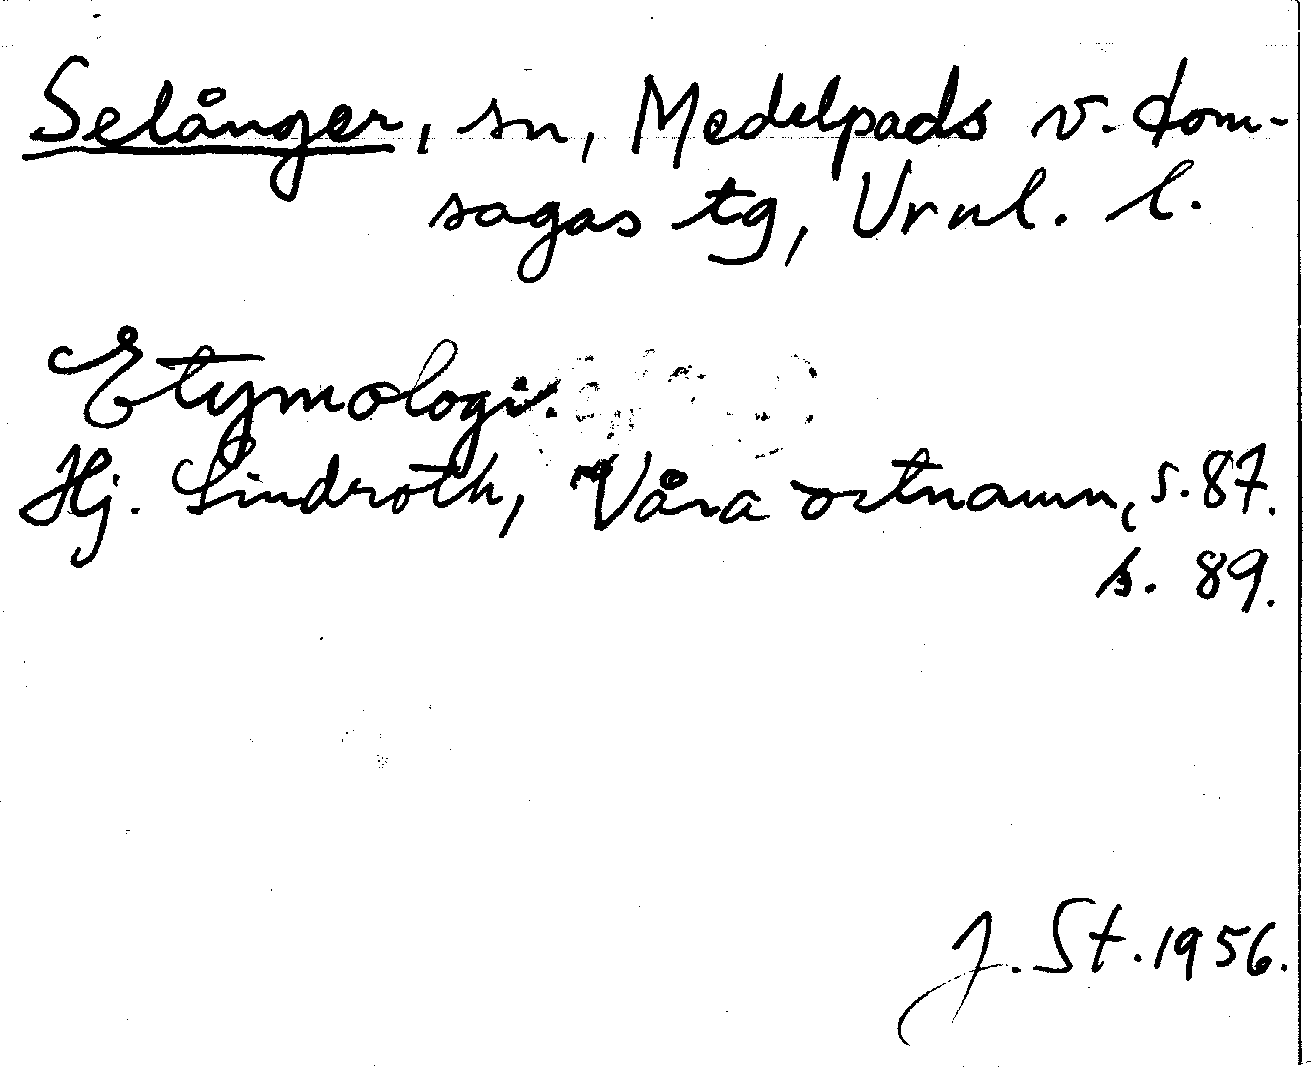 Selånger, sn, Medelpads v. dom-
sagas tg, Vrnl. l.
Etymologi.
Hj. Lindroth, Våra ortnamn, s. 87.
s. 89.
J. St. 1956.